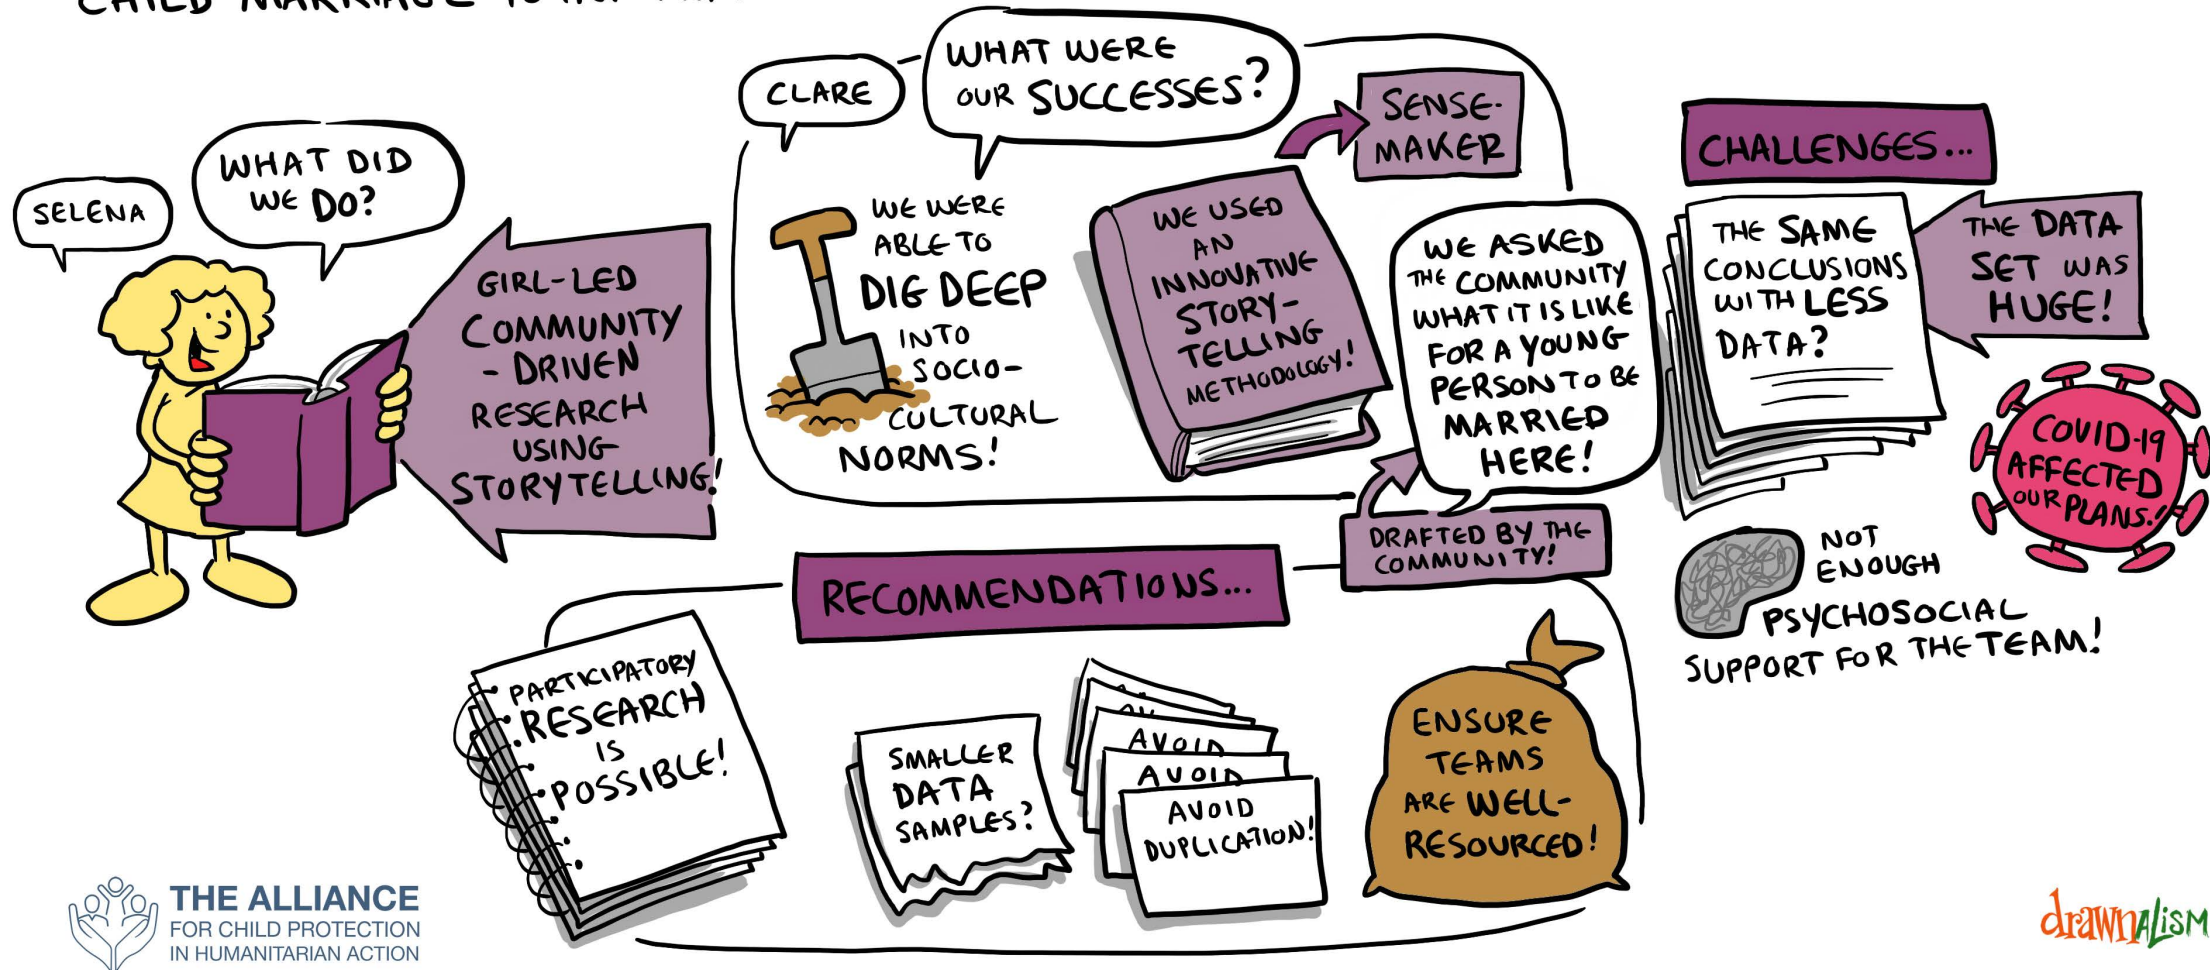 CHILD MARRIAGE
SELENA
WHAT DID
WE DO?
GIRL-LED
COMMUNITY
-DRIVEN
RESEARCH
USING
STORYTELLING!
CLARE
WHAT WERE
OUR SUCCESSES?
WE WERE
ABLE TO
DIG DEEP
INTO
SOCIO-
CULTURAL
NORMS!
WE USED
AN
INNOVATIVE
STORY-
TELLING
METHODOLOGY!
SENSE-
MAKER
WE ASKED
THE COMMUNITY
WHAT IT IS LIKE
FOR A YOUNG
PERSON TO BE
MARRIED
HERE!
DRAFTED BY THE
COMMUNITY!
CHALLENGES...
THE SAME
CONCLUSIONS
WITH LESS
DATA?
THE DATA
SET WAS
HUGE!
COVID-19
AFFECTED
OUR PLANS!
NOT
ENOUGH
PSYCHOSOCIAL
SUPPORT FOR THE TEAM!
RECOMMENDATIONS...
PARTICIPATORY
RESEARCH
IS
POSSIBLE!
SMALLER
DATA
SAMPLES?
AVOID
AVOID
AVOID
DUPLICATION!
ENSURE
TEAMS
ARE WELL-
RESOURCED!
THE ALLIANCE
FOR CHILD PROTECTION
IN HUMANITARIAN ACTION
drawnalism